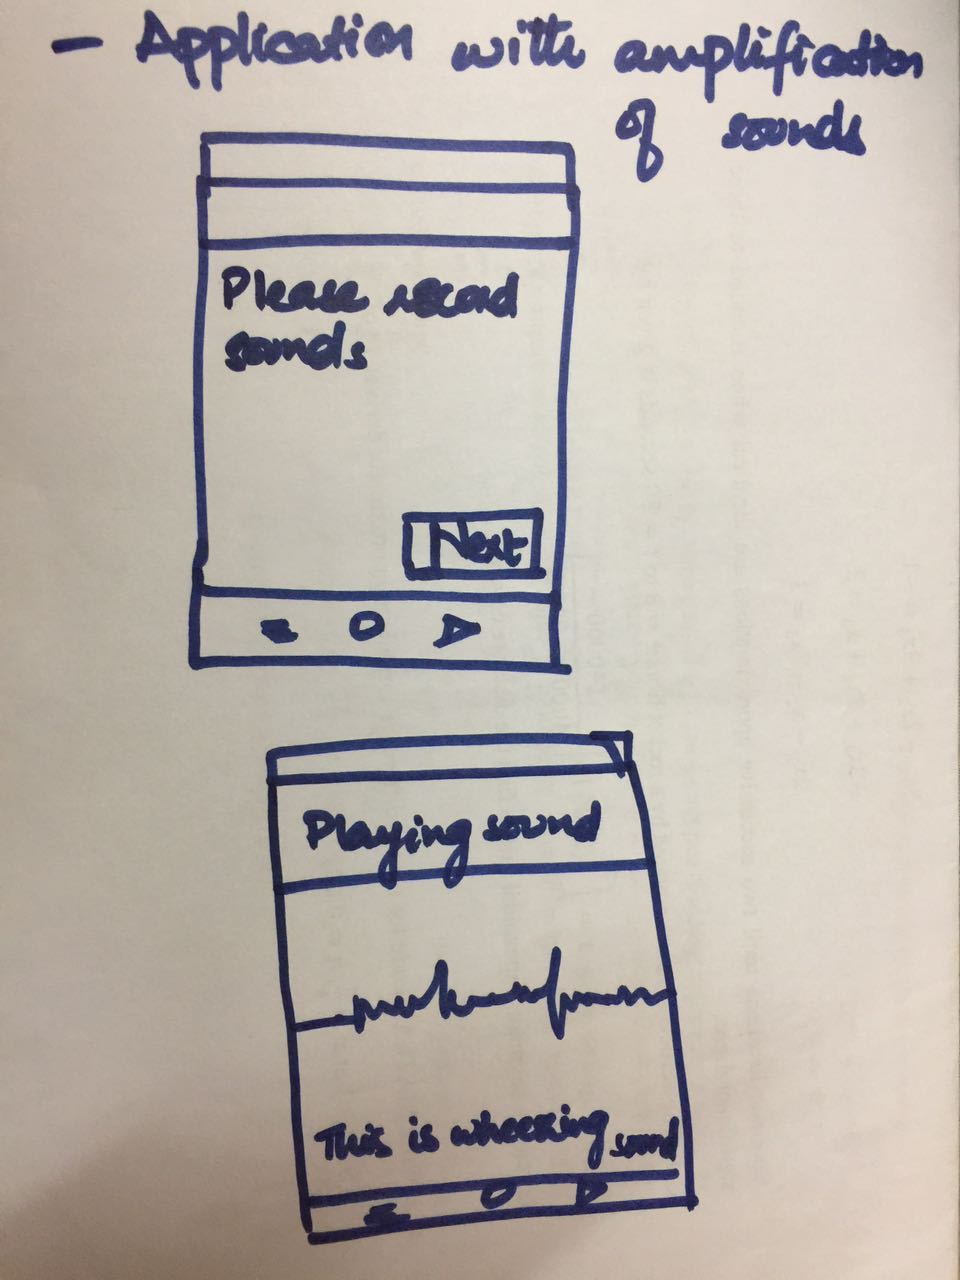 - Application with amplification
of sounds
Please record
sounds
Next
Playing sound
This is wheezing sound